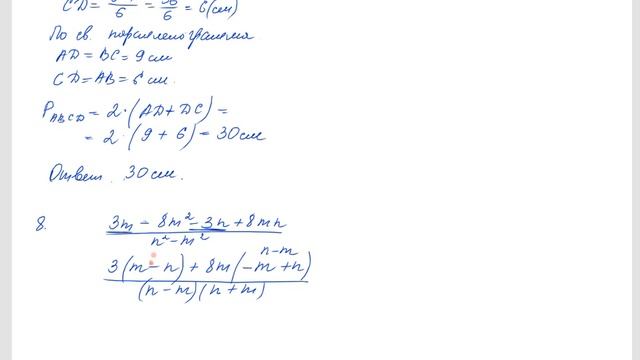 CD = 54/6 = 36/6 = 6(см)
По св. параллелограмма
AD = BC = 9 см
CD = AB = 6 см.
P_ABCD = 2·(AD + DC) =
= 2·(9 + 6) = 30 см
Ответ. 30 см.
8. (3m − 8m² − 3n + 8mn)/(n² − m²)
n−m
(3(m − n) + 8m(−m + n))/((n − m)(n + m))